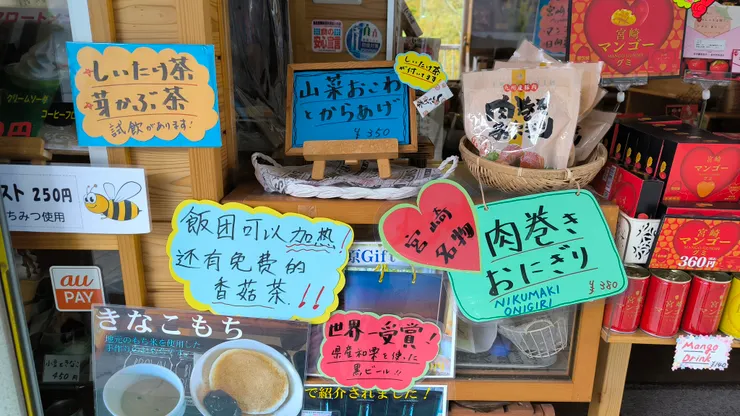 しいたけ茶
芽かぶ茶
試飲があります!
山菜おこわ
とからあげ
¥350
しいたけ茶
が付いてます
宮崎
マンゴー
グミ
スト 250円
ちみつ使用
飯团可以加热!
还有免费的
香菇茶!!
宮崎
名物
肉巻き
おにぎり
NIKUMAKI
ONIGIRI
¥380
au
PAY
きなこもち
世界一受賞!
県産和栗を使った
黒ビール!!
Gift
宮崎
マンゴー
宮崎
マンゴー
360円
Mango
Drink
¥140
450円